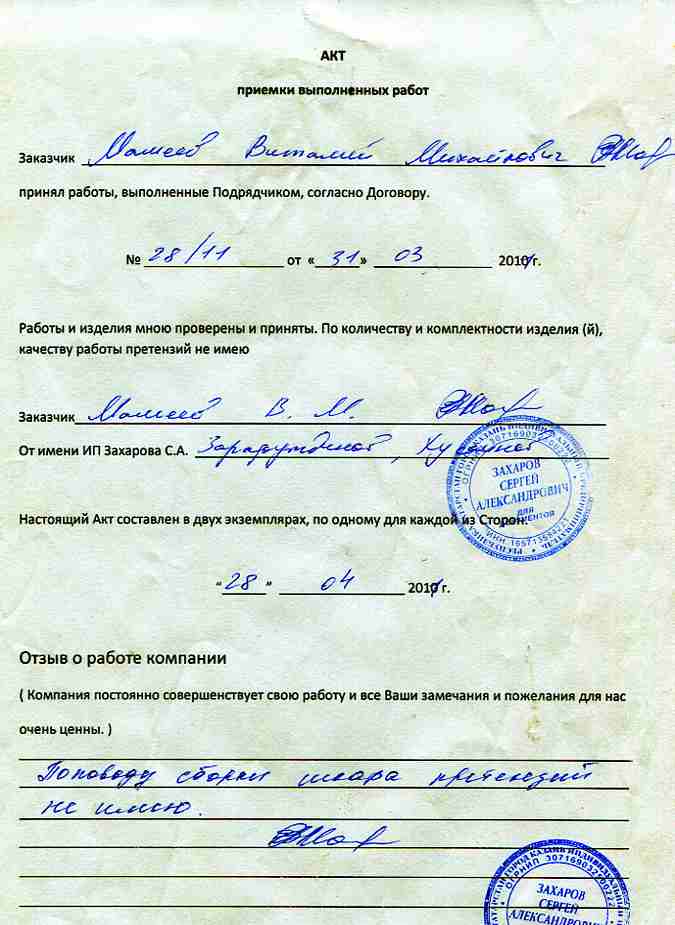 АКТ
приемки выполненных работ
Заказчик Мамеев Виталий Михайлович
принял работы, выполненные Подрядчиком, согласно Договору.
№ 28/11 от «31» 03 2011 г.
Работы и изделия мною проверены и приняты. По количеству и комплектности изделия (й),
качеству работы претензий не имею
Заказчик Мамеев В. М.
От имени ИП Захарова С.А.
ЗАХАРОВ
СЕРГЕЙ
АЛЕКСАНДРОВИЧ
ДЛЯ
ДОКУМЕНТОВ
Настоящий Акт составлен в двух экземплярах, по одному для каждой из Сторон.
"28" 04 2011 г.
Отзыв о работе компании
( Компания постоянно совершенствует свою работу и все Ваши замечания и пожелания для нас
очень ценны. )
Поповоду сборки шкафа претензий
не имею.
ЗАХАРОВ
СЕРГЕЙ
АЛЕКСАНДРОВИЧ